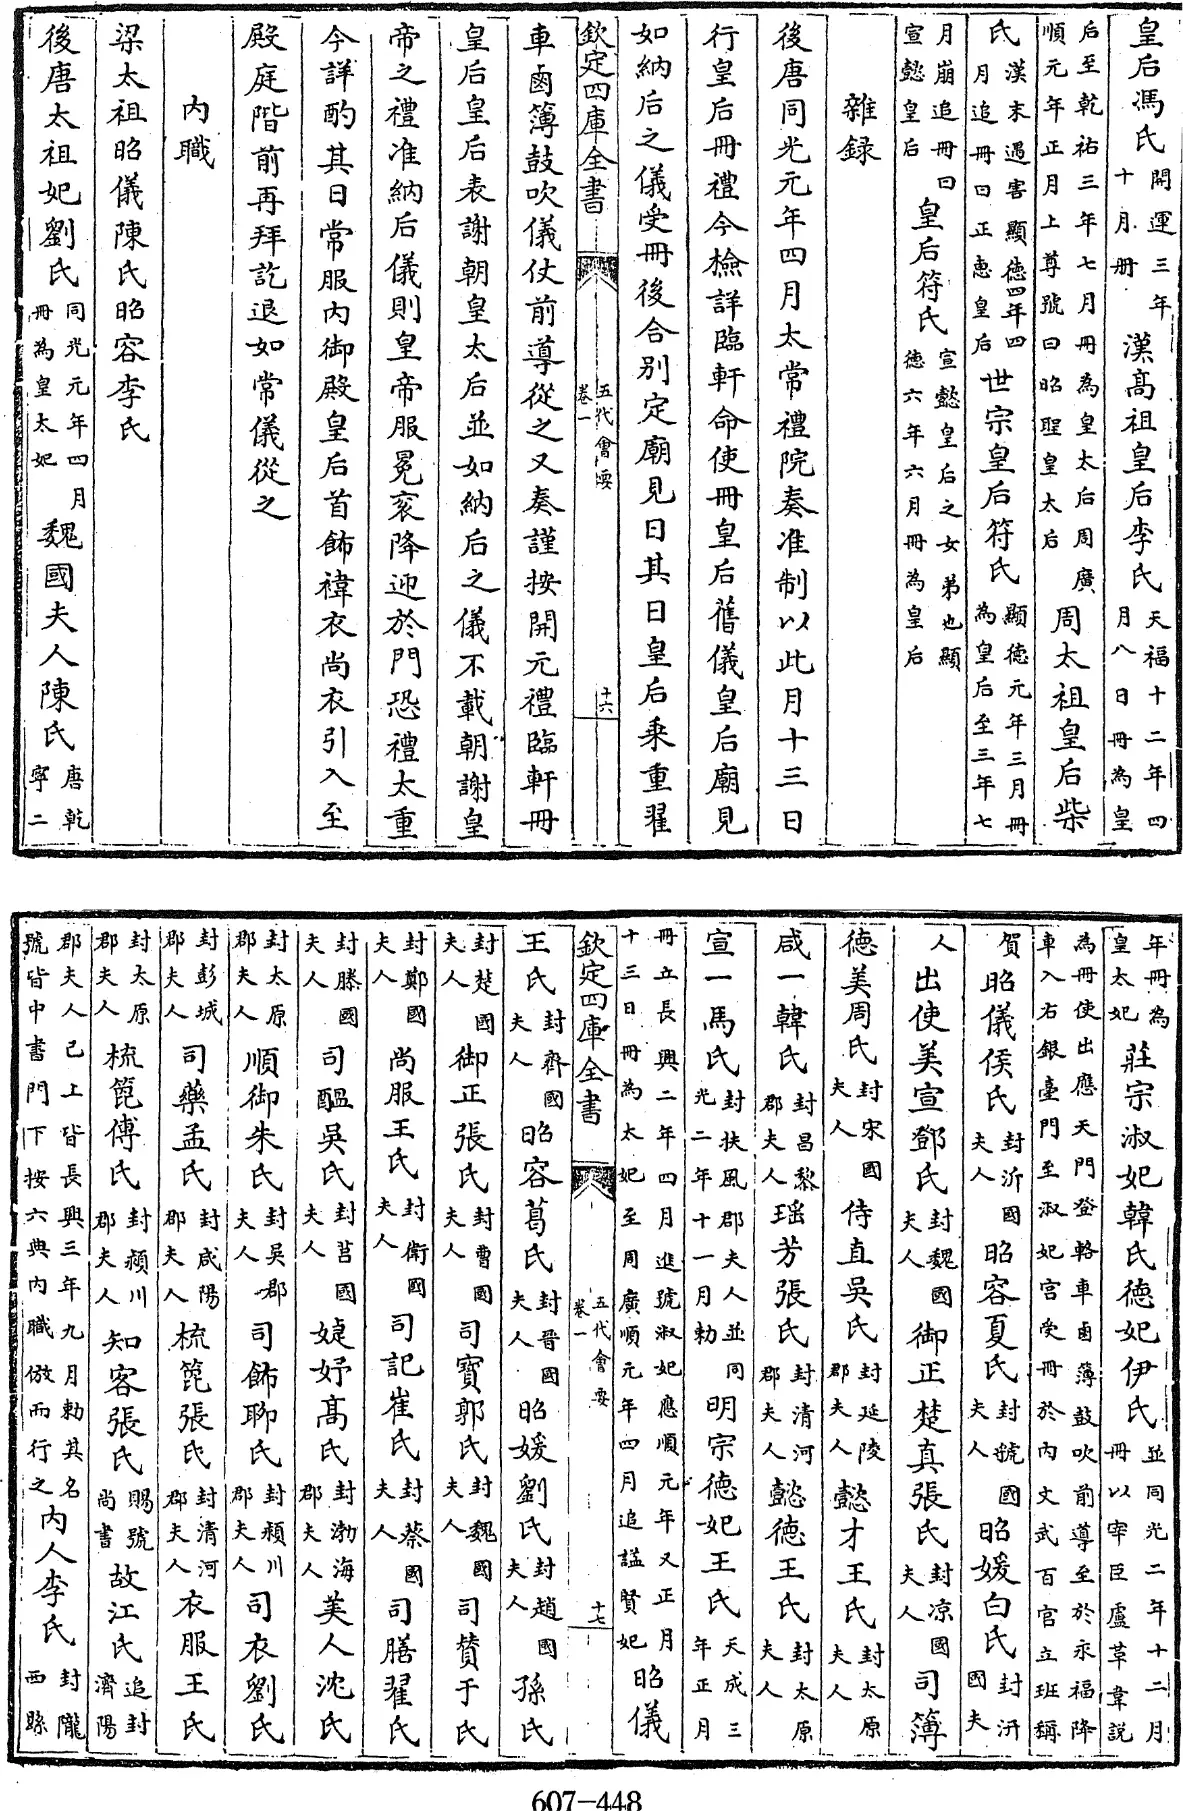 皇后馮氏開運三年十月册漢髙祖皇后李氏天福十二年四月八日冊為皇
后至乾祐三年七月冊為皇太后周廣順元年正月上尊號曰昭聖皇太后周太祖皇后柴
氏漢末遇害顯徳四年四月追冊曰正恵皇后世宗皇后符氏顯徳元年三月冊為皇后至三年七
月崩追冊曰宣懿皇后皇后符氏宣懿皇后之女弟也顯徳六年六月冊為皇后
雜録
後唐同光元年四月太常禮院奏准制以此月十三日
行皇后冊禮今檢詳臨軒命使冊皇后舊儀皇后廟見
如納后之儀受冊後合别定廟見日其日皇后乗重翟
欽定四庫全書 五代會要 卷一 十六
車鹵簿鼓吹儀仗前導從之又奏謹按開元禮臨軒冊
皇后皇后表謝朝皇太后並如納后之儀不載朝謝皇
帝之禮准納后儀則皇帝服冕衮降迎於門恐禮太重
今詳酌其日常服内御殿皇后首飾褘衣尚衣引入至
殿庭階前再拜訖退如常儀從之
内職
梁太祖昭儀陳氏昭容李氏
後唐太祖妃劉氏同光元年四月冊為皇太妃魏國夫人陳氏唐乾寧二
年冊為皇太妃莊宗淑妃韓氏德妃伊氏並同光二年十二月冊以宰臣盧革韋説
為冊使出應天門登輅車鹵簿鼓吹前導至於永福降車入右銀臺門至淑妃宫受冊於内文武百官立班稱
賀昭儀侯氏封沂國夫人昭容夏氏封虢國夫人昭媛白氏封沂國夫
人出使美宣鄧氏封魏國夫人御正楚真張氏封凉國夫人司簿
德美周氏封宋國夫人侍直吳氏封延陵郡夫人懿才王氏封太原夫人
咸一韓氏封昌黎郡夫人瑶芳張氏封清河郡夫人懿德王氏封太原夫人
宣一馬氏封扶風郡夫人並同光二年十一月勅明宗德妃王氏天成三年正月
冊立長興二年四月進號淑妃應順元年又正月十三日冊為太妃至周廣順元年四月追諡賢妃昭儀
欽定四庫全書 五代會要 卷一 十七
王氏封齊國夫人昭容葛氏封晉國夫人昭媛劉氏封趙國夫人孫氏
封楚國夫人御正張氏封曹國夫人司寳郭氏封魏國夫人司賛于氏
封鄭國夫人尚服王氏封衛國夫人司記崔氏封蔡國夫人司膳翟氏
封滕國夫人司醖吳氏封莒國夫人婕妤髙氏封渤海郡夫人美人沈氏
封太原郡夫人順御朱氏封吳郡夫人司飾聊氏封潁川郡夫人司衣劉氏
封彭城郡夫人司藥孟氏封咸陽郡夫人梳篦張氏封清河郡夫人衣服王氏
封太原郡夫人梳篦傅氏封潁川郡夫人知客張氏賜號尚書故江氏追封濟陽
郡夫人已上皆長興三年九月勅其名號皆中書門下按六典内職倣而行之内人李氏封隴西縣
607-448